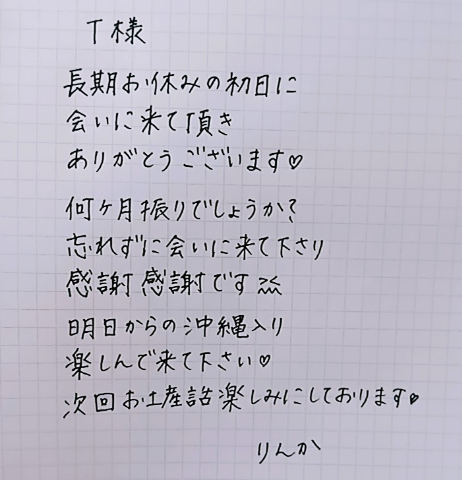 T様
長期お休みの初日に
会いに来て頂き
ありがとうございます♡
何ヶ月振りでしょうか?
忘れずに会いに来て下さり
感謝感謝です
明日からの沖縄入り
楽しんで来て下さい♡
次回お土産話楽しみにしております♡
りんか